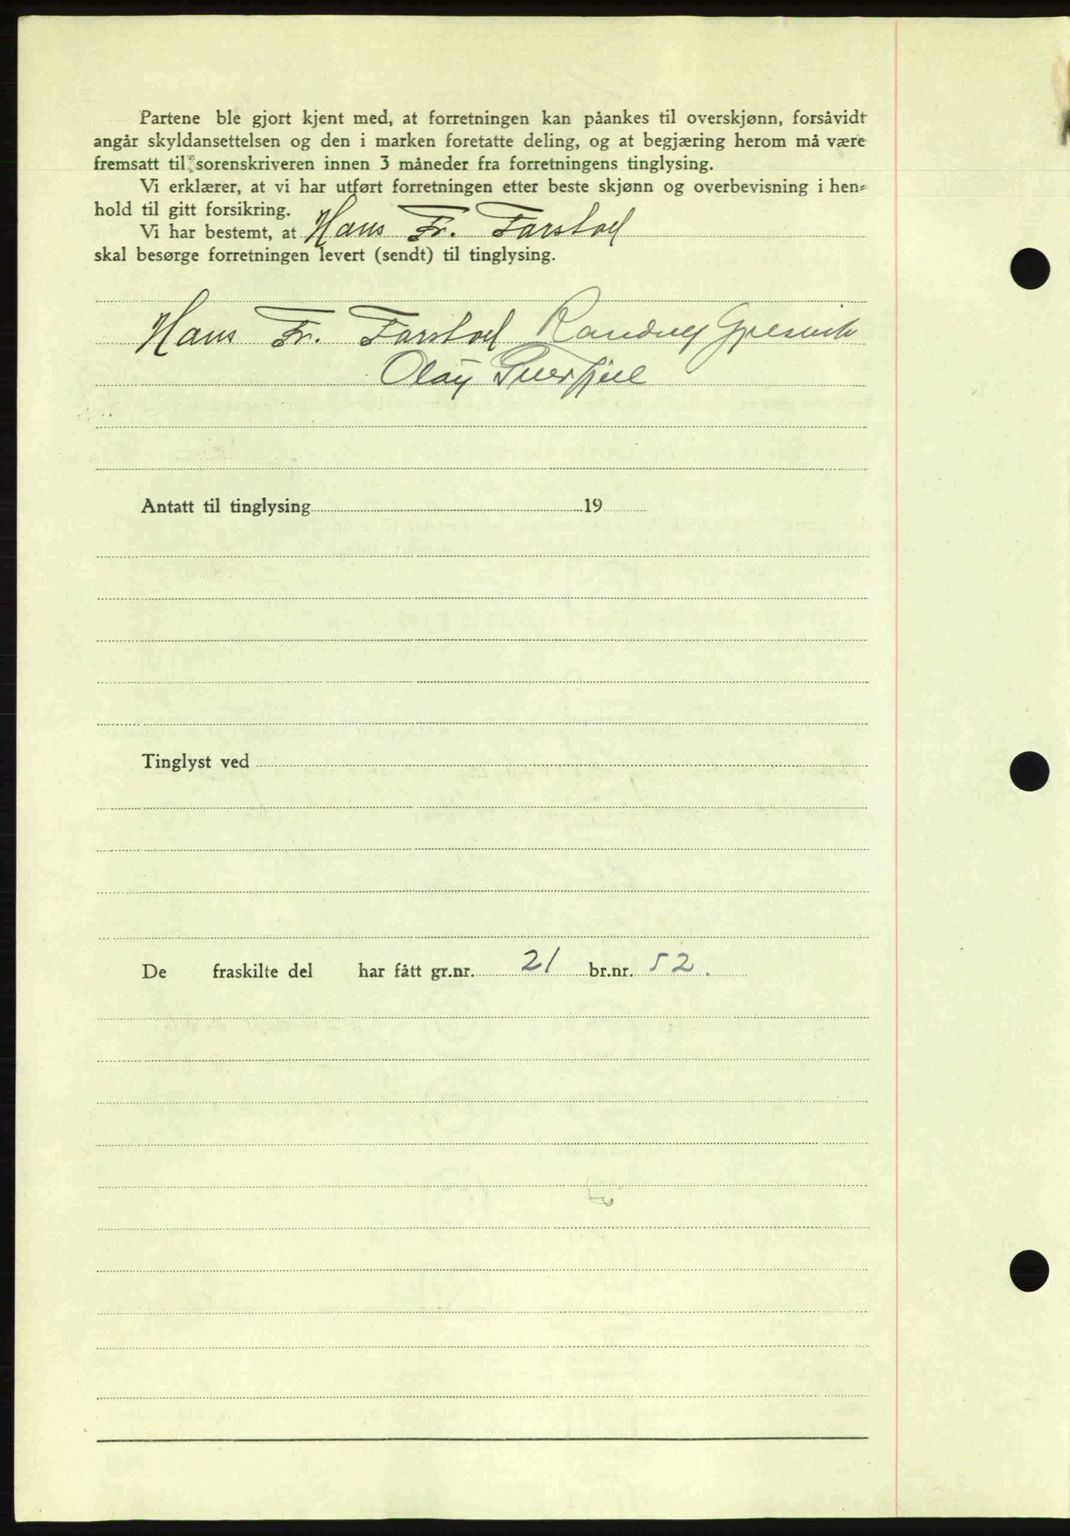 Partene ble gjort kjent med, at forretningen kan påankes til overskjønn, forsåvidt
angår skyldansettelsen og den i marken foretatte deling, og at begjæring herom må være
fremsatt til sorenskriveren innen 3 måneder fra forretningens tinglysing.
Vi erklærer, at vi har utført forretningen etter beste skjønn og overbevisning i hen-
hold til gitt forsikring.
Vi har bestemt, at Hans Fr. Farstad
skal besørge forretningen levert (sendt) til tinglysing.
Hans Fr. Farstad
Olav
Antatt til tinglysing 19
Tinglyst ved
De fraskilte del har fått gr.nr. 21 br.nr. 52.